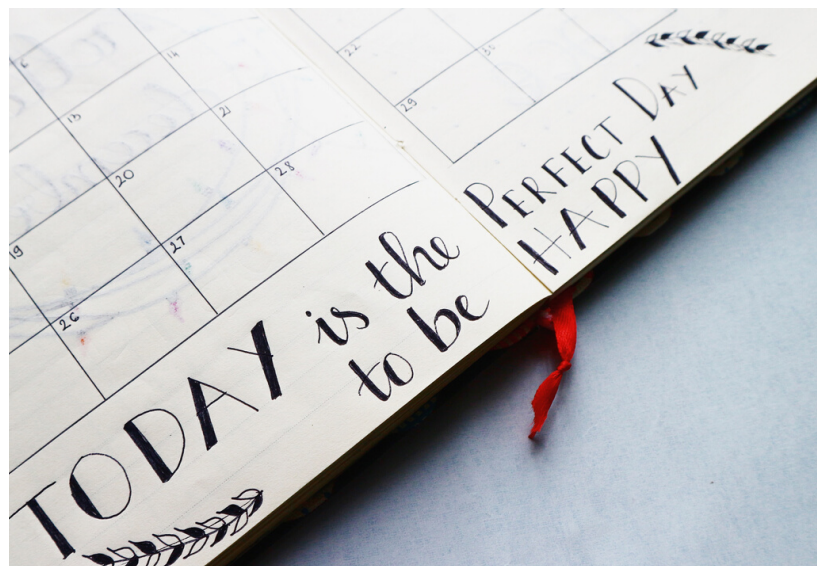 6
13 14
19 20 21
26 27 28
22
29 30
TODAY is the PERFECT DAY
to be HAPPY